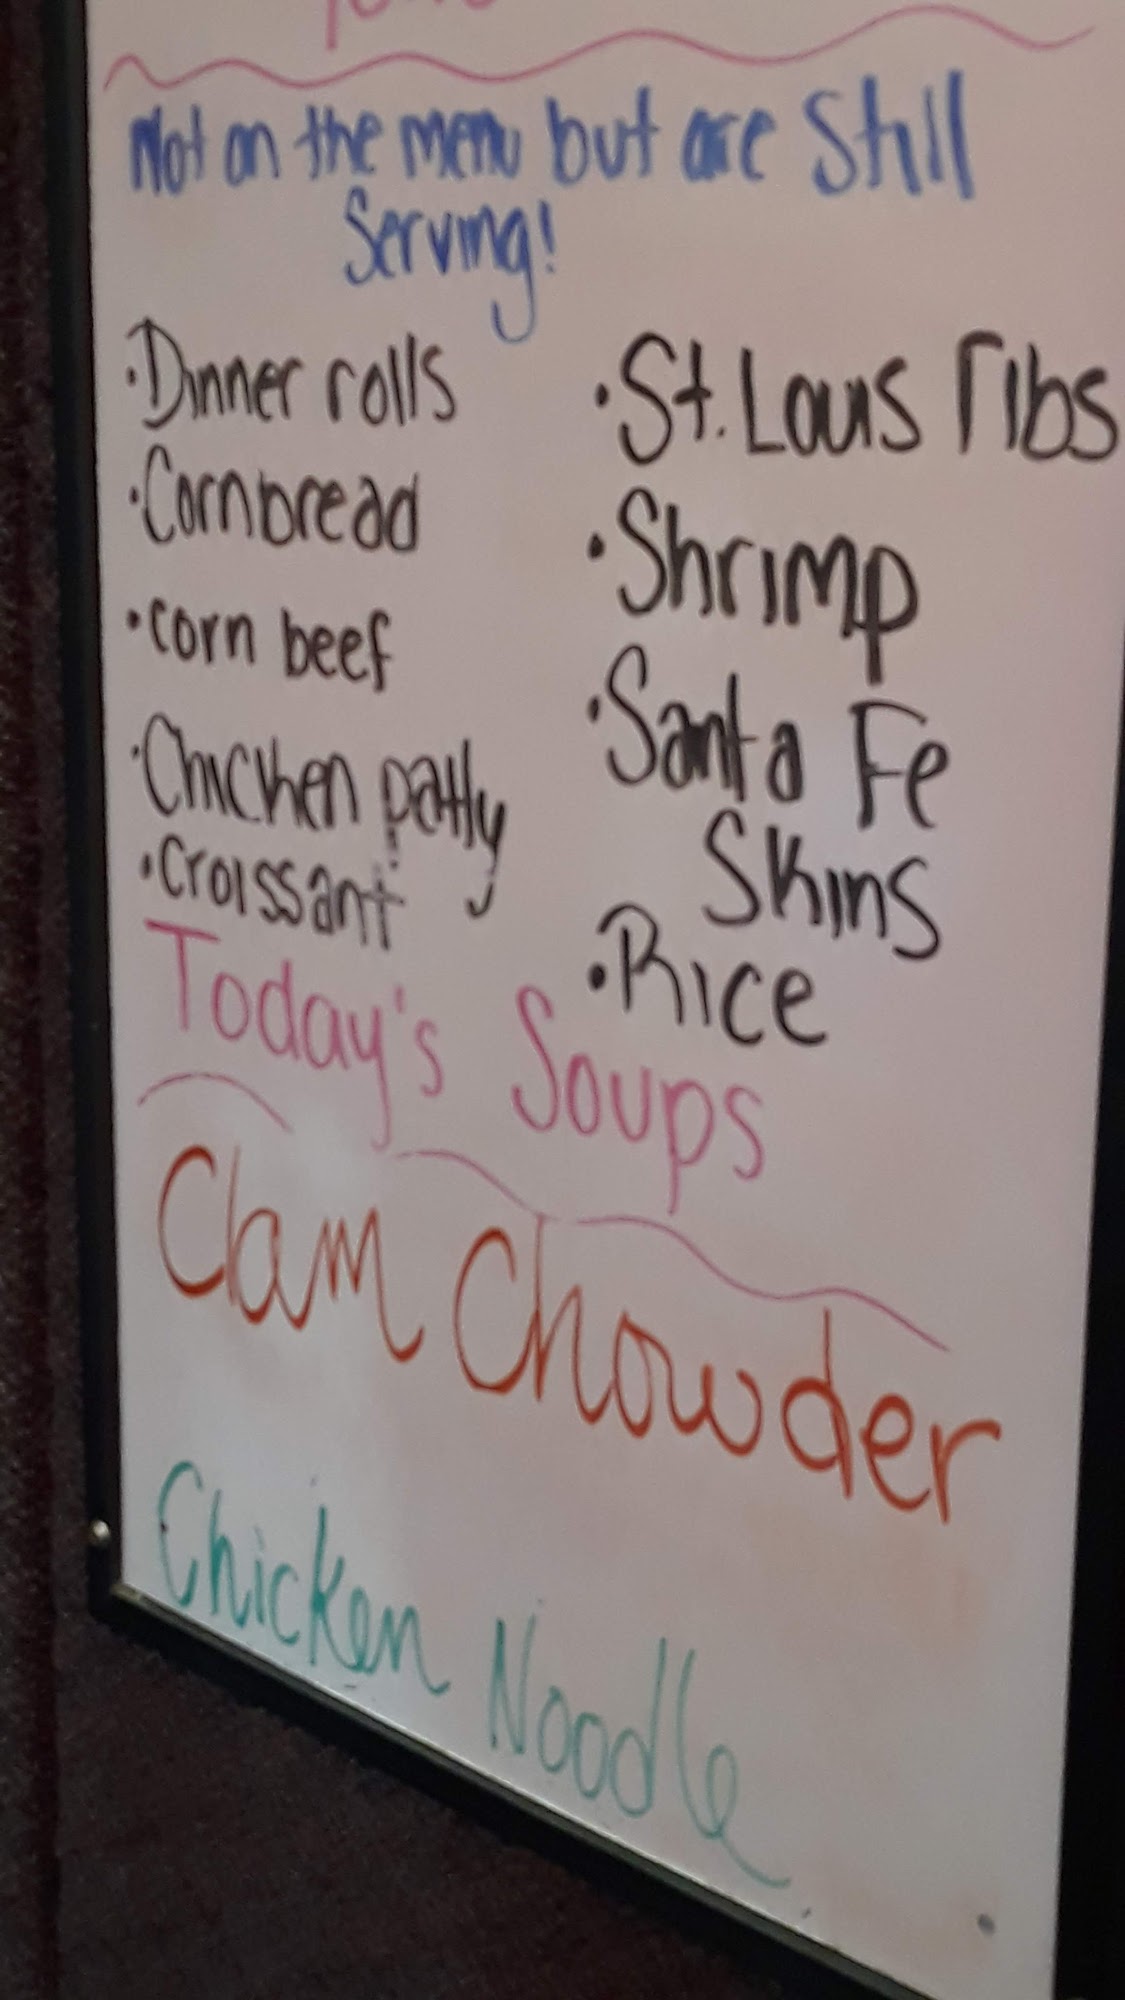 Not on the menu but are Still
Serving!
·Dinner rolls
·Cornbread
·corn beef
·Chicken patty
·Croissant
·St. Louis ribs
·Shrimp
·Santa Fe
Skins
·Rice
Today's Soups
Clam Chowder
Chicken Noodle